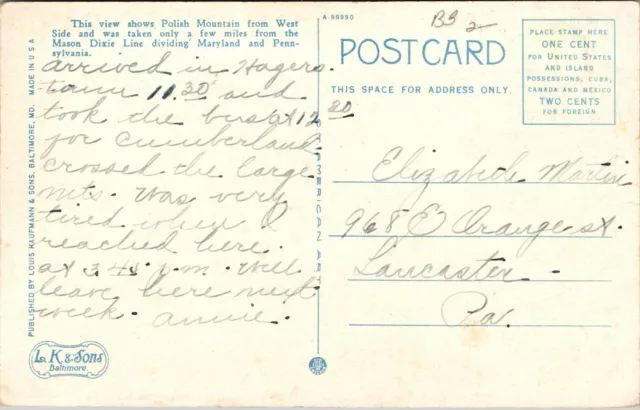 This view shows Polish Mountain from West
Side and was taken only a few miles from the
Mason Dixie Line dividing Maryland and Penn-
sylvania.
arrived in Hagers
town 11.30 and
took the bus at 12
20
for Cumberland
crossed the large
mts. Was very
tired when I
reached here.
at 3.45 p.m. Will
leave here next
week. Annie.
PUBLISHED BY LOUIS KAUFMANN & SONS, BALTIMORE, MD. MADE IN U S A
L. K. & Sons
Baltimore.
A-98990
B3
2
POST CARD
THIS SPACE FOR ADDRESS ONLY.
PLACE STAMP HERE
ONE CENT
FOR UNITED STATES
AND ISLAND
POSSESSIONS, CUBA,
CANADA AND MEXICO
TWO CENTS
FOR FOREIGN
Elizabeth Martin
968 E Orange st.
Lancaster
Pa.